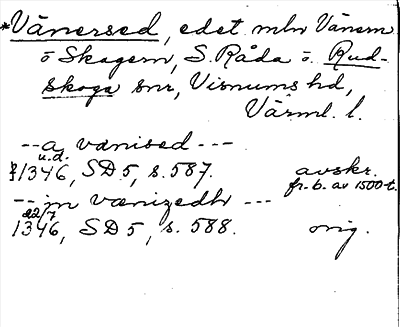 *Vänersed, edet mln Vänern
o Skagern, S. Råda o. Rud-
skoga snr, Visnums hd,
Värml. l.
-- a vænised ---
u.d.
1346, SD 5, s. 587. avskr.
fr. b. av 1500-t.
-- jn vænizedh ---
22/7
1346, SD 5, s. 588. orig.